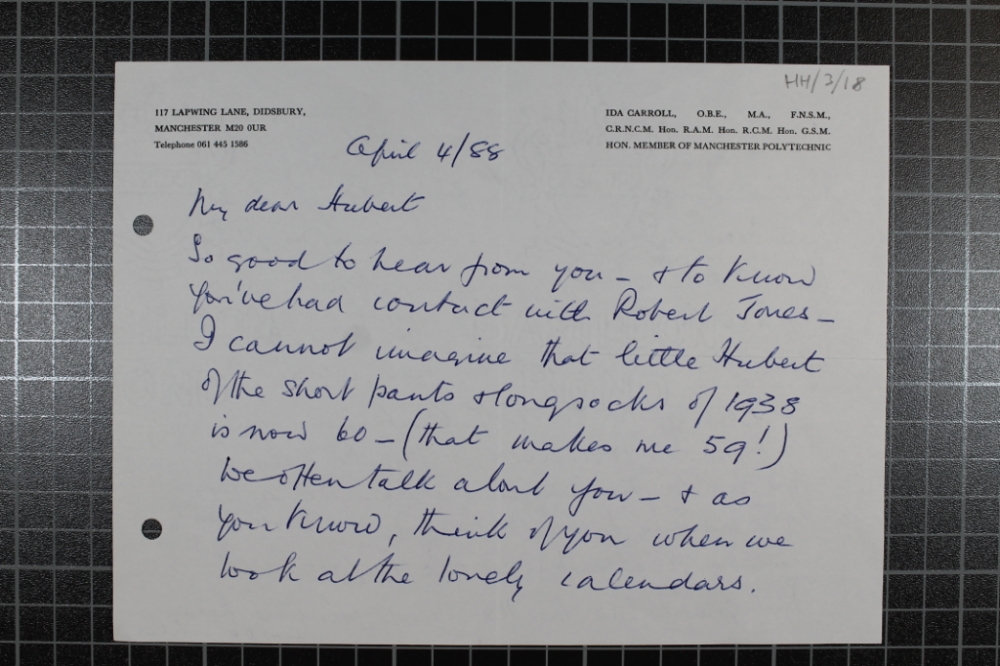 HH/3/18
117 LAPWING LANE, DIDSBURY,
MANCHESTER M20 0UR
Telephone 061 445 1586
IDA CARROLL, O.B.E., M.A., F.N.S.M.,
C.R.N.C.M. Hon. R.A.M. Hon. R.C.M. Hon. G.S.M.
HON. MEMBER OF MANCHESTER POLYTECHNIC
April 4/88
My dear Hubert
So good to hear from you – & to know
you've had contact with Robert Jones –
I cannot imagine that little Hubert
of the short pants & long socks of 1938
is now 60 – (that makes me 59!)
We often talk about you – & as
you know, think of you when we
look at the lovely calendars.